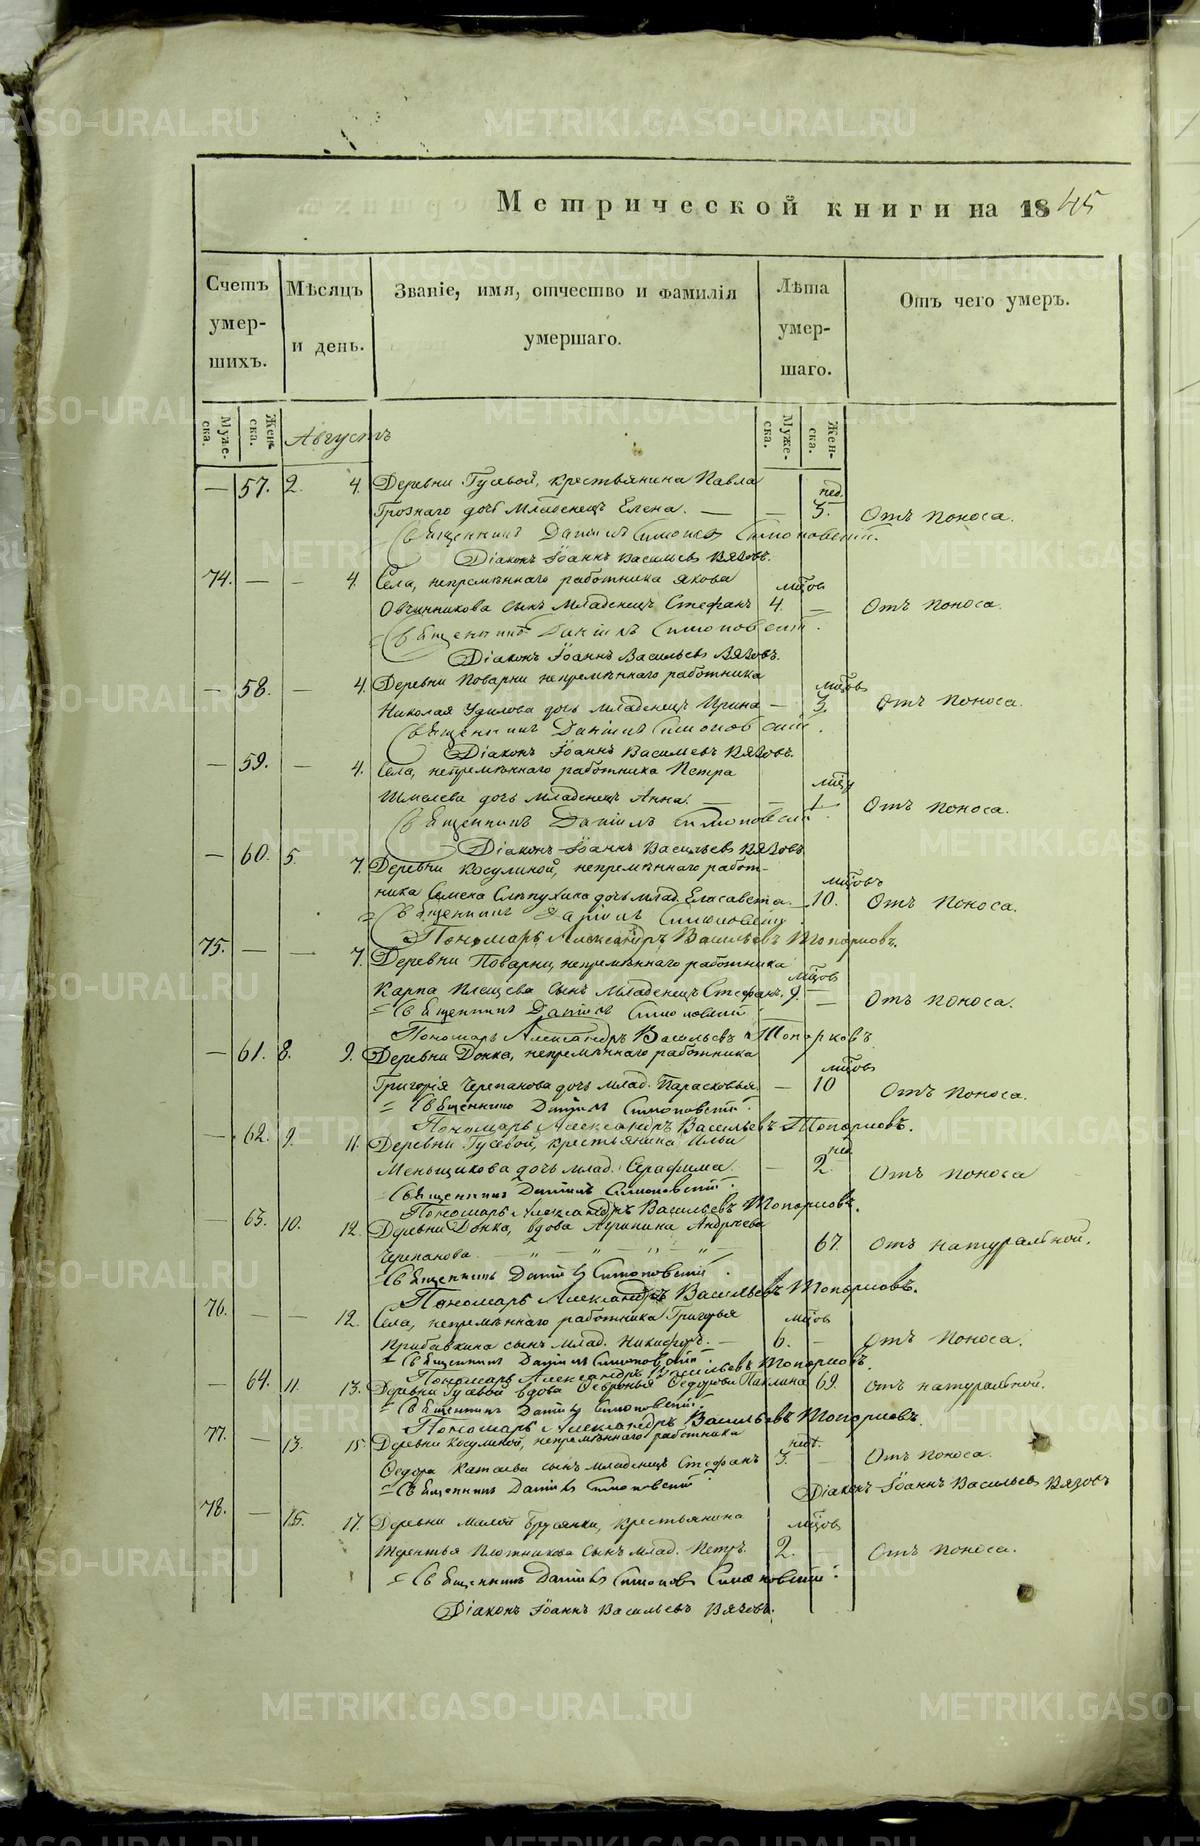 Метрической книги на 1845
Счетъ умер- шихъ.
Мѣсяцъ и день.
Званіе, имя, отчество и фамилія умершаго.
Лѣта умер- шаго.
Отъ чего умеръ.
Муже- ска.
Жен- ска.
Августъ
Муже- ска.
Жен- ска.
— 57. 2. 4. Деревни Гусевой, крестьянина Павла нед.
Грознаго дочь младенецъ Елена. — — 5. Отъ поноса.
Священникъ Даніилъ Симоновскій.
Діаконъ Іоаннъ Васильевъ Вязовъ.
74. — — 4. Села, непремѣннаго работника Якова мцовъ
Овчинникова сынъ младенецъ Стефанъ 4. — Отъ поноса.
Священникъ Даніилъ Симоновскій.
Діаконъ Іоаннъ Васильевъ Вязовъ.
— 58. — 4. Деревни Поварни непремѣннаго работника мцовъ
Николая Удилова дочь младенецъ Ирина — 3. Отъ поноса.
Священникъ Даніилъ Симоновскій.
Діаконъ Іоаннъ Васильевъ Вязовъ.
— 59. — 4. Села, непремѣннаго работника Петра
Шмелева дочь младенецъ Анна. — — 1 Отъ поноса.
Священникъ Даніилъ Симоновскій.
Діаконъ Іоаннъ Васильевъ Вязовъ.
— 60. 5. 7. Деревни Косулиной, непремѣннаго работ- мцовъ
ника дочь млад. Елисавета. — 10. Отъ поноса.
Священникъ Даніилъ Симоновскій.
Пономарь Александръ Васильевъ Топорковъ.
75. — — 7. Деревни Поварни, непремѣннаго работника мцовъ
Карпа Плещева сынъ младенецъ Стефанъ. 9. — Отъ поноса.
Священникъ Даніилъ Симоновскій.
Пономарь Александръ Васильевъ Топорковъ
— 61. 8. 9. Деревни Донка, непремѣннаго работника мцовъ
Григорія Черепанова дочь млад. Парасковья. — 10 Отъ поноса.
Священникъ Даніилъ Симоновскій.
Пономарь Александръ Васильевъ Топорковъ.
— 62. 9. 11. Деревни Гусевой, крестьянина Ильи нед.
Меньщикова дочь млад. Серафима. — 2. Отъ поноса
Священникъ Даніилъ Симоновскій.
Пономарь Александръ Васильевъ Топорковъ.
— 63. 10. 12. Деревни Донка, вдова Андрѣева
Черепанова. — „ — „ — „ — „ — 67. Отъ натуральной.
Священникъ Даніилъ Симоновскій.
Пономарь Александръ Васильевъ Топорковъ.
76. — — 12. Села, непремѣннаго работника Григорья мцовъ
сынъ млад. Никифоръ. — 6. — Отъ поноса.
Священникъ Даніилъ Симоновскій.
Пономарь Александръ Васильевъ Топорковъ.
— 64. 11. 13. Деревни Гусевой вдова Февронья Федорова Паклина 69. Отъ натуральной.
Священникъ Даніилъ Симоновскій.
Пономарь Александръ Васильевъ Топорковъ.
77. — 13. 15 Деревни Косулиной, непремѣннаго работника нед.
Федора Катаева сынъ младенецъ Стефанъ 3. — Отъ поноса.
Священникъ Даніилъ Симоновскій. Діаконъ Іоаннъ Васильевъ Вязовъ
78. — 15. 17. Деревни Малой Брусянки, крестьянина мцовъ
Терентья Плотникова сынъ млад. Петръ. 2. — Отъ поноса.
Священникъ Даніилъ Симоновъ Симоновскій.
Діаконъ Іоаннъ Васильевъ Вязовъ.
METRIKI.GASO-URAL.RU